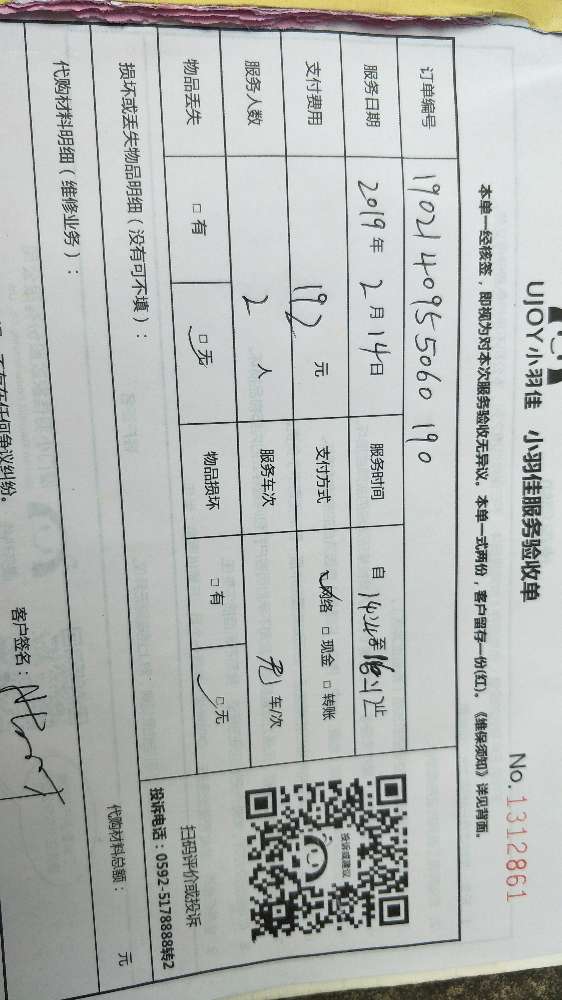 UJOY小羽佳 小羽佳服务验收单
No. 1312861
本单一经核签，即视为对本次服务验收无异议。本单一式两份，客户留存一份(红)。《维保须知》详见背面。
订单编号 190214095506 0190
服务日期 2019年2月14日 服务时间 自 至 止
支付费用 192元 支付方式 网络 □现金 □转账
服务人数 2人 服务车次 车/次
物品丢失 □有 □无 物品损坏 □有 □无
投诉或建议
扫码评价或投诉
投诉电话：0592-5178888转2
损坏或丢失物品明细（没有可不填）：
代购材料明细（维修业务）：
代购材料总额： 元
不存在任何争议纠纷。
客户签名：